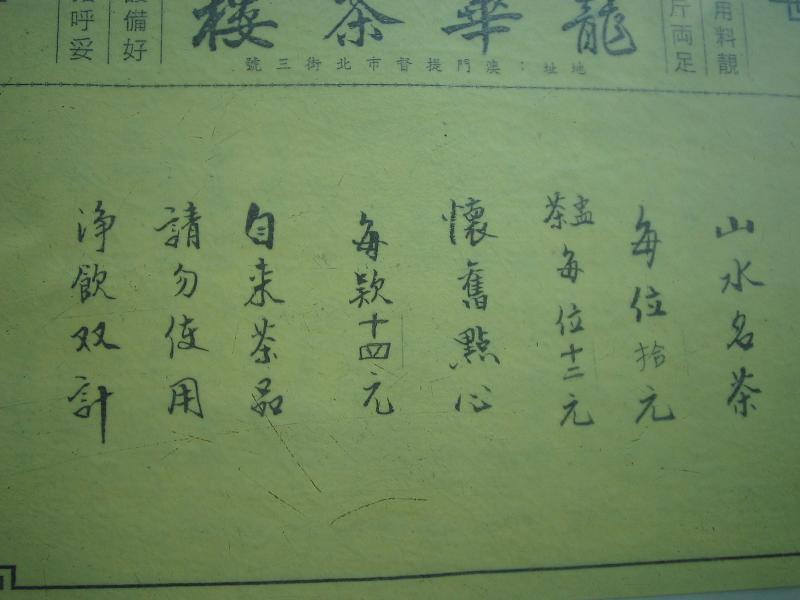 龍華茶樓
地址：澳門提督市北街三號
用料靚
斤両足
備好
呼妥
山水名茶
每位拾元
盅茶每位十二元
懷舊點心
每款十四元
自来茶品
請勿使用
净飲双計